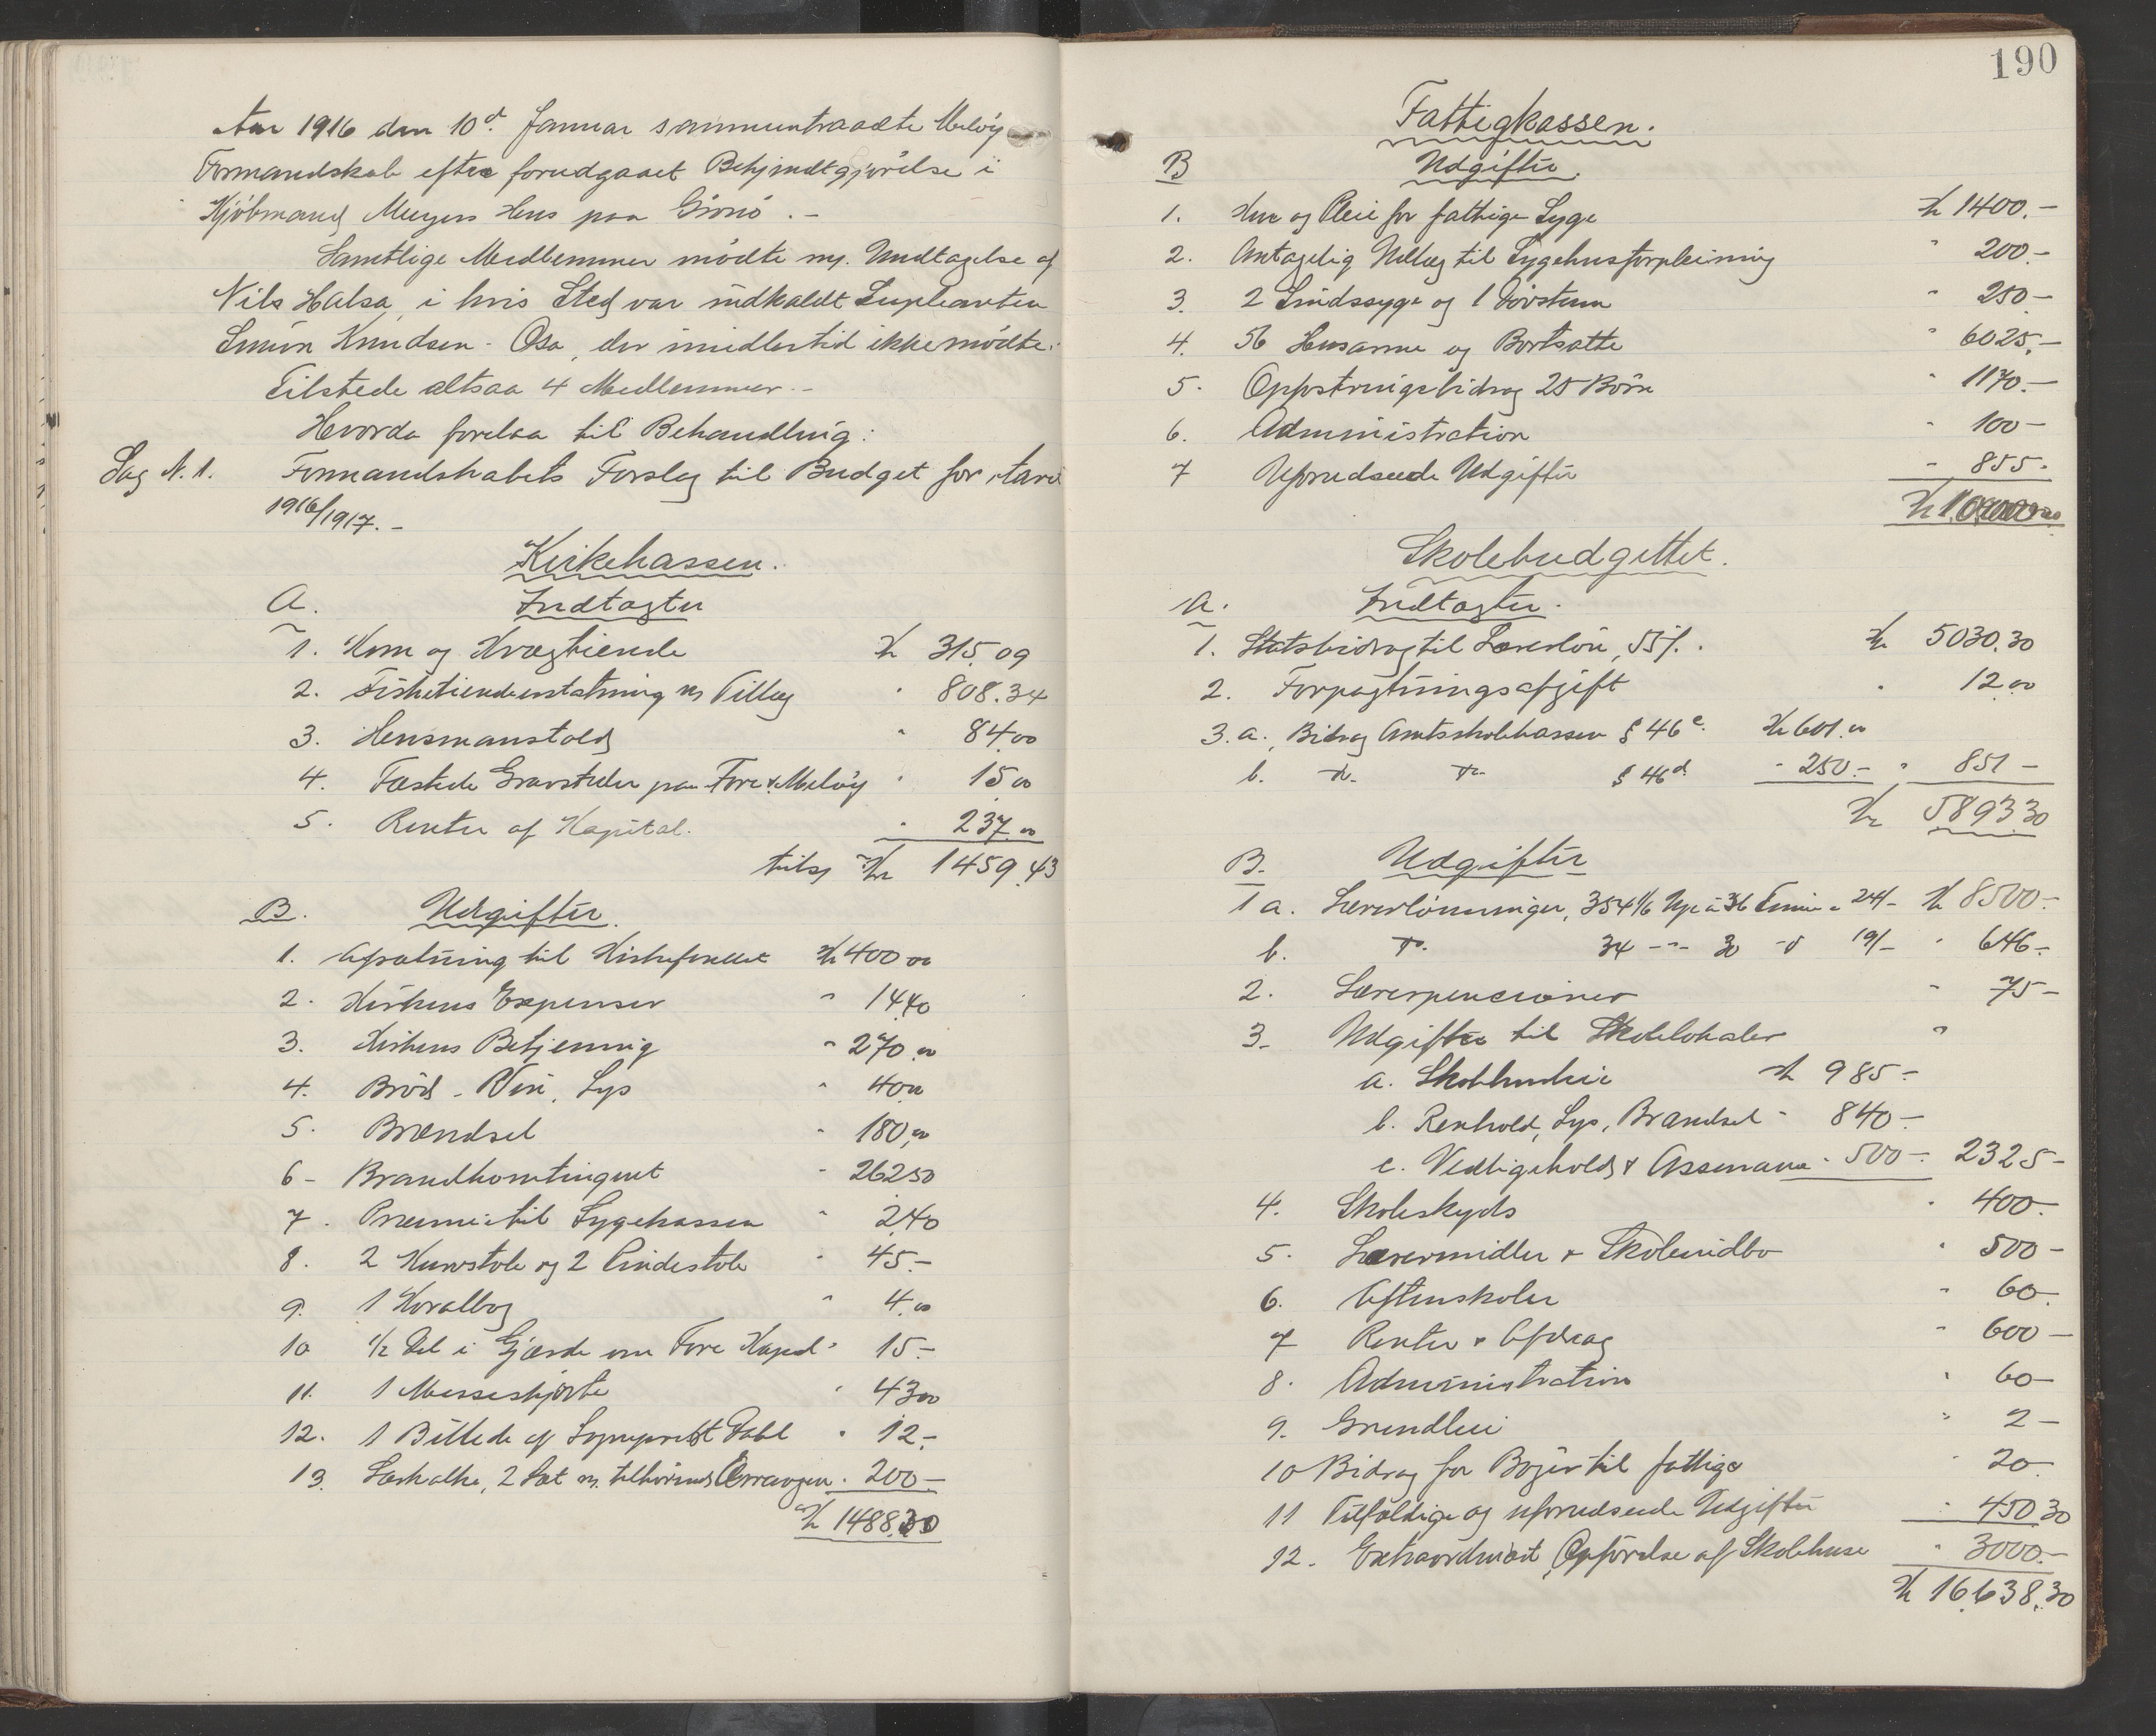 Aar 1916 den 10d. Januar sammentraadte Meløy
Formandskab efter forudgaaet Bekjendtgjørelse i
Kjøbmand Meyers Hus paa Grønø. -
Samtlige Medlemmer mødte m. Undtagelse af
Nils Halsa, i hvis Sted var indkaldt Supleanten
Simon Knudsen - Osa, der imidlertid ikke mødte.
Tilstede altsaa 4 Medlemmer. -
Hvorda forelaa til Behandling:
Sag N. 1. Formandskabets Forslag til Budget for Aaret
1916/1917. -
Kirkekassen.
A. Indtægter
1. Korn og Kvægtiende Kr 315,09
2. Fisketiendeerstatning m Tillæg " 808.34
3. Lensmanstold " 84.00
4. Fæstede Gravsteder paa Fore & Meløy " 15.00
5. Renter af Kapital. " 237.00
tils. Kr 1459.43
B. Udgifter.
1. Afsætning til Kirkefondet Kr 400 00
2. Kirkens Expenser " 14.40
3. Kirkens Betjening " 270.00
4. Brød - Vin, Lys " 40.00
5. Brændsel " 180,00
6 - Brandkontingent " 262 50
7. Præmie til Sygekassen " 2.40
8. 2 Kurvstole og 2 Pindestole " 45.-
9. 1 Koralbog " 4.00
10 1/2 Del i Gjærde om Fore Kapel " 15.-
11. 1 Messeskjorte " 43 00
12. 1 Billede af Sogneprest Dahl " 12.-
13. Særkalke, 2 Sæt m. tilhørende Arrangem. 200 -
Kr 1488.30
190
Fattigkassen.
B Udgifter.
1. Kur og Pleie for fattige Syge Kr 1400.-
2. Antagelig Udlæg til Sygehusforpleining " 200.-
3. 2 Sindssyge og 1 Døvstum " 250.-
4. 56 Husarme og Bortsatte " 6025.-
5. Oppostringsbidrag 25 Børn " 1170.-
6. Administration " 100 -
7 Uforudseede Udgifter " 855.-
Kr 10,000.00
Skolebudgettet.
A. Indtægter.
1. Statsbidrag til Lærerløn, 55%. Kr 5030.30
2. Forpagtningsafgift " 12.00
3. a. Bidrag Amtsskolekassen § 46 c. Kr 601.00
b. Do. Do. § 46 d. " 250.- " 851 -
Kr 5893.30
B. Udgifter
1 a. Lærerlønninger, 354 1/6 Uge à 36 Timer à 24/- Kr 8500.-
b. Do. 34 -"- 30 - " 19/- " 646.-
2. Lærerpensioner " 75 -
3. Udgifter til Skolelokaler "
a. Skolehusleie Kr 985 -
b. Renhold, Lys, Brændsel " 840 -
c. Vedligehold & Assurance " 500 - 2325 -
4. Skoleskyds " 400.-
5. Læremidler & Skoleindbo " 500 -
6. Aftenskoler " 60.
7 Renter & Afdrag " 600 -
8. Administration " 60 -
9. Grundleie " 2 -
10 Bidrag for Bøger til fattige " 20.
11 Tilfældige og uforudseede Udgifter " 450 30
12. Extraordinært, Opførelse af Skolehuse " 3000.-
Kr 16,638.30